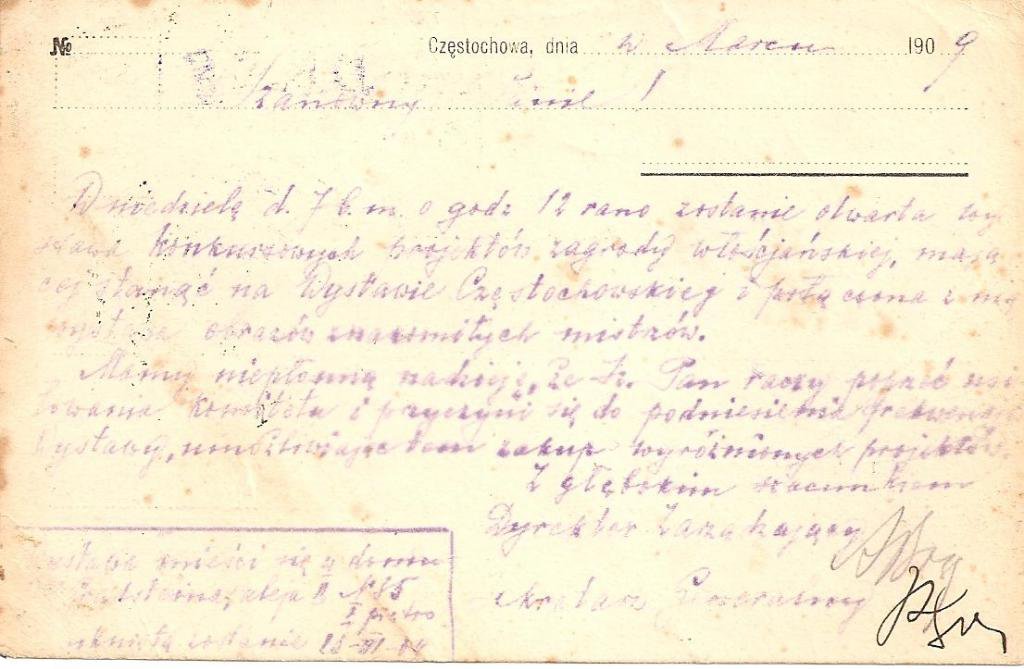 № Częstochowa, dnia w Marcu 1909
Szanowny Panie!
W niedzielę d. 7 b. m. o godz 12 rano zostanie otwarta wy
stawa konkursowych projektów zagrody włościańskiej, mają
cej stanąć na Wystawie Częstochowskiej i połączona z nią
wystawa obrazów znakomitych mistrzów.
Mamy niepłonną nadzieję, że Sz. Pan raczy poprzeć usi
łowania Komitetu i przyczyni się do podniesienia frekwencji
Wystawy, umożliwiając tem zakup wyróżnionych projektów.
Z głębokim szacunkiem
Dyrektor Zarządzający
Sekretarz Generalny
Wystawa mieści się w domu
aleja II № 45
I piętro
zostanie 15-III-09